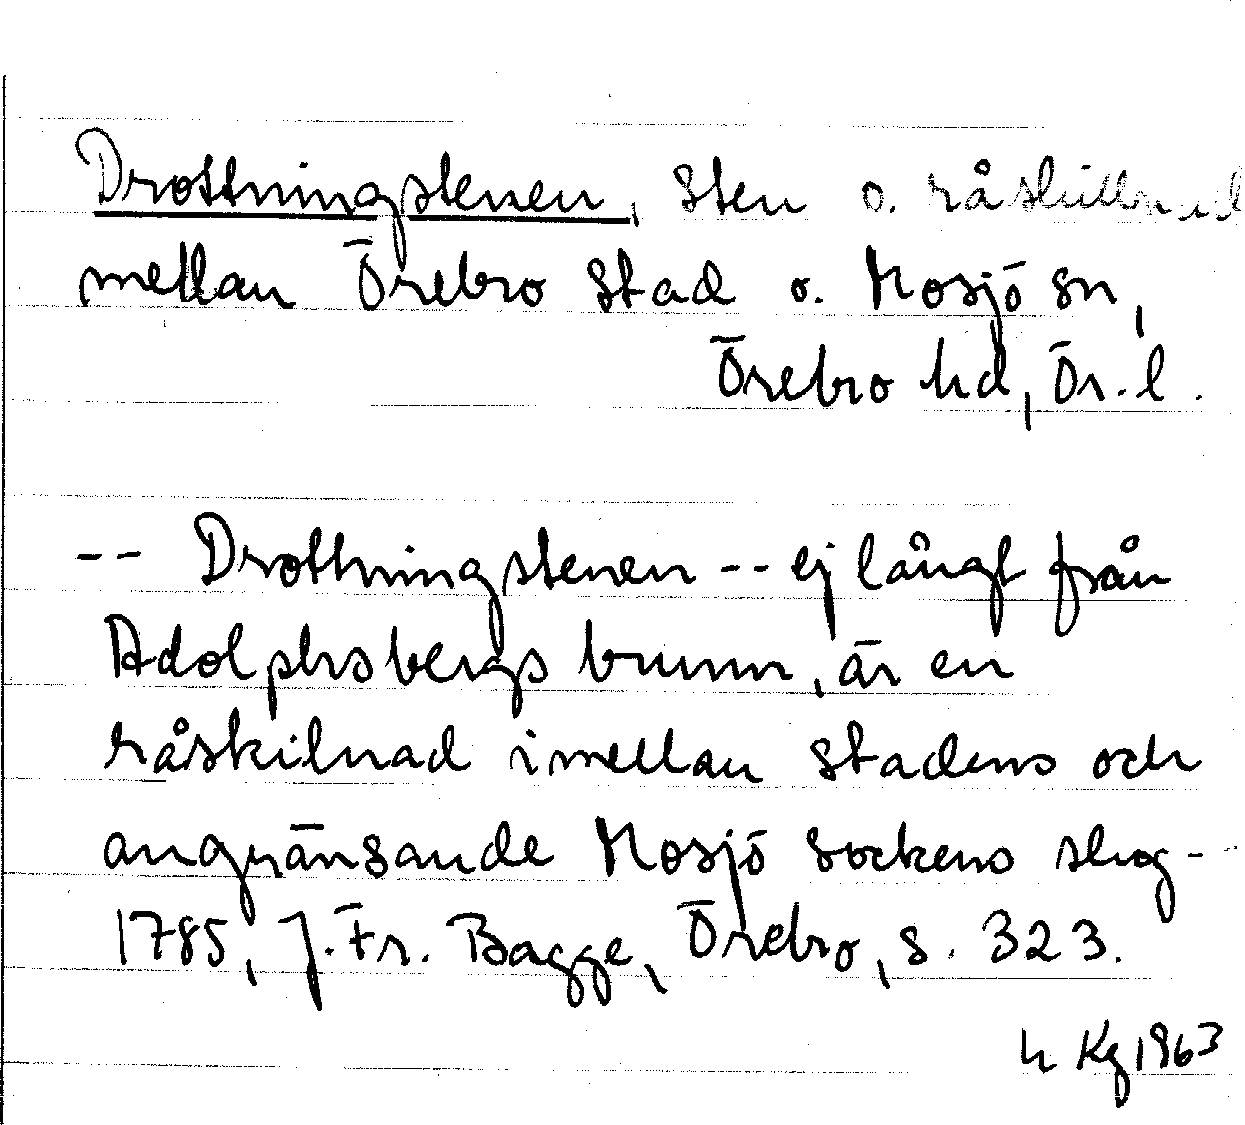 Drottningstenen, sten o. råskillnad
mellan Örebro stad o. Mosjö sn,
Örebro hd, Ör. l.
-- Drottningstenen -- ej långt från
Adolphsbergs brunn, är en
råskilnad imellan stadens och
angränsande Mosjö sockens skog --
1785, J. Fr. Bagge, Örebro, s. 323.
Kg 1963